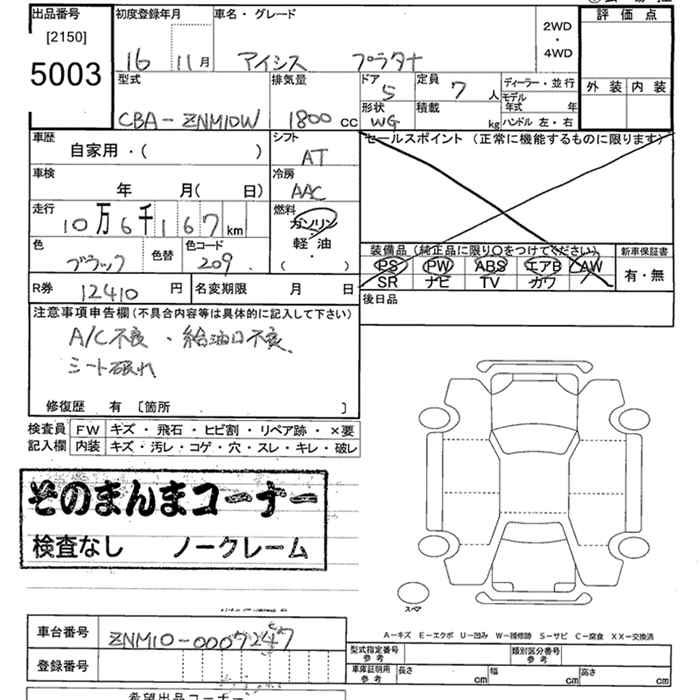 出品番号 初度登録年月 車名・グレード 評価点
[2150] 2WD
5003 16 11月 アイシス プラタナ ・
4WD
型式 排気量 ドア 5 定員 7 人 ディーラー・並行 外装 内装
モデル年式 年
CBA-ZNM10W 1800 cc 形状 WG 積載 kg ハンドル 左・右
車歴 自家用・( ) シフト AT セールスポイント (正常に機能するものに限ります)
車検 年 月( 日) 冷房 AAC
走行 10万6千167km 燃料 ガソリン
軽・油
( )
色 ブラック 色替 色コード 209 装備品(純正品に限り〇をつけてください) 新車保証書
PS PW ABS エアB AW 有・無
SR ナビ TV カワ
R券 12410 円 名変期限 月 日 後日品
注意事項申告欄(不具合内容等は具体的に記入して下さい)
A/C不良、給油口不良、
シート破れ
修復歴 有 〔箇所 〕
検査員 FW キズ・飛石・ヒビ割・リペア跡・×要
記入欄 内装 キズ・汚レ・コゲ・穴・スレ・キレ・破レ
そのまんまコーナー
検査なし ノークレーム
スペア
車台番号 ZNM10-0007247
A－キズ E－エクボ U－凹み W－補修跡 S－サビ C－腐食 XX－交換済
登録番号 型式指定番号 参考 類別区分番号 参考
車庫証明用 参考 長さ cm 幅 cm 高さ cm
希望出品コーナー